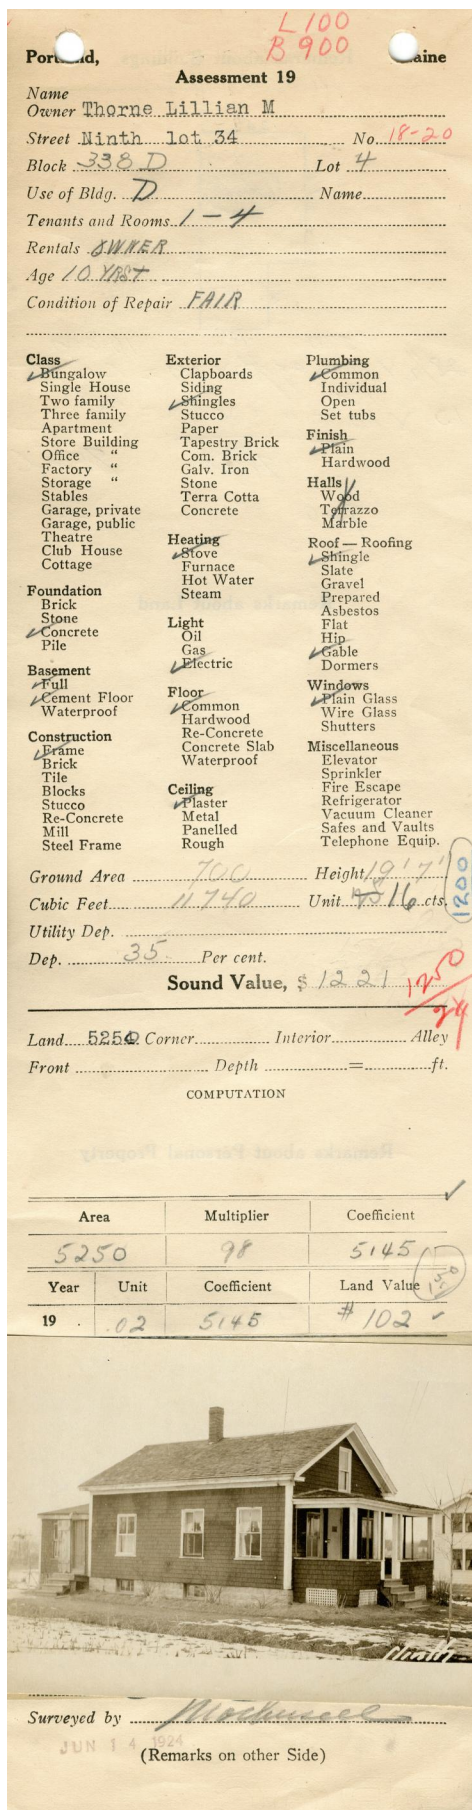 L 100
B 900
Portland, Maine
Assessment 19
Name
Owner Thorne Lillian M
Street Ninth lot 34 No. 18-20
Block 338 D Lot 4
Use of Bldg. D Name
Tenants and Rooms 1-4
Rentals OWNER
Age 10 YRS+
Condition of Repair FAIR
Class
Bungalow
Single House
Two family
Three family
Apartment
Store Building
Office "
Factory "
Storage "
Stables
Garage, private
Garage, public
Theatre
Club House
Cottage
Foundation
Brick
Stone
Concrete
Pile
Basement
Full
Cement Floor
Waterproof
Construction
Frame
Brick
Tile
Blocks
Stucco
Re-Concrete
Mill
Steel Frame
Exterior
Clapboards
Siding
Shingles
Stucco
Paper
Tapestry Brick
Com. Brick
Galv. Iron
Stone
Terra Cotta
Concrete
Heating
Stove
Furnace
Hot Water
Steam
Light
Oil
Gas
Electric
Floor
Common
Hardwood
Re-Concrete
Concrete Slab
Waterproof
Ceiling
Plaster
Metal
Panelled
Rough
Plumbing
Common
Individual
Open
Set tubs
Finish
Plain
Hardwood
Halls
Wood
Terrazzo
Marble
Roof — Roofing
Shingle
Slate
Gravel
Prepared
Asbestos
Flat
Hip
Gable
Dormers
Windows
Plain Glass
Wire Glass
Shutters
Miscellaneous
Elevator
Sprinkler
Fire Escape
Refrigerator
Vacuum Cleaner
Safes and Vaults
Telephone Equip.
Ground Area 700 Height 19'7"
Cubic Feet 11740 Unit 16 cts.
1200
Utility Dep.
Dep. 35 Per cent.
Sound Value, $ 1221
1250
24
Land 5250 Corner Interior Alley
Front Depth = ft.
COMPUTATION
Area Multiplier Coefficient
5250 98 5145
Year Unit Coefficient Land Value
19 .02 5145 # 102
Surveyed by
JUN 14 1924
(Remarks on other Side)